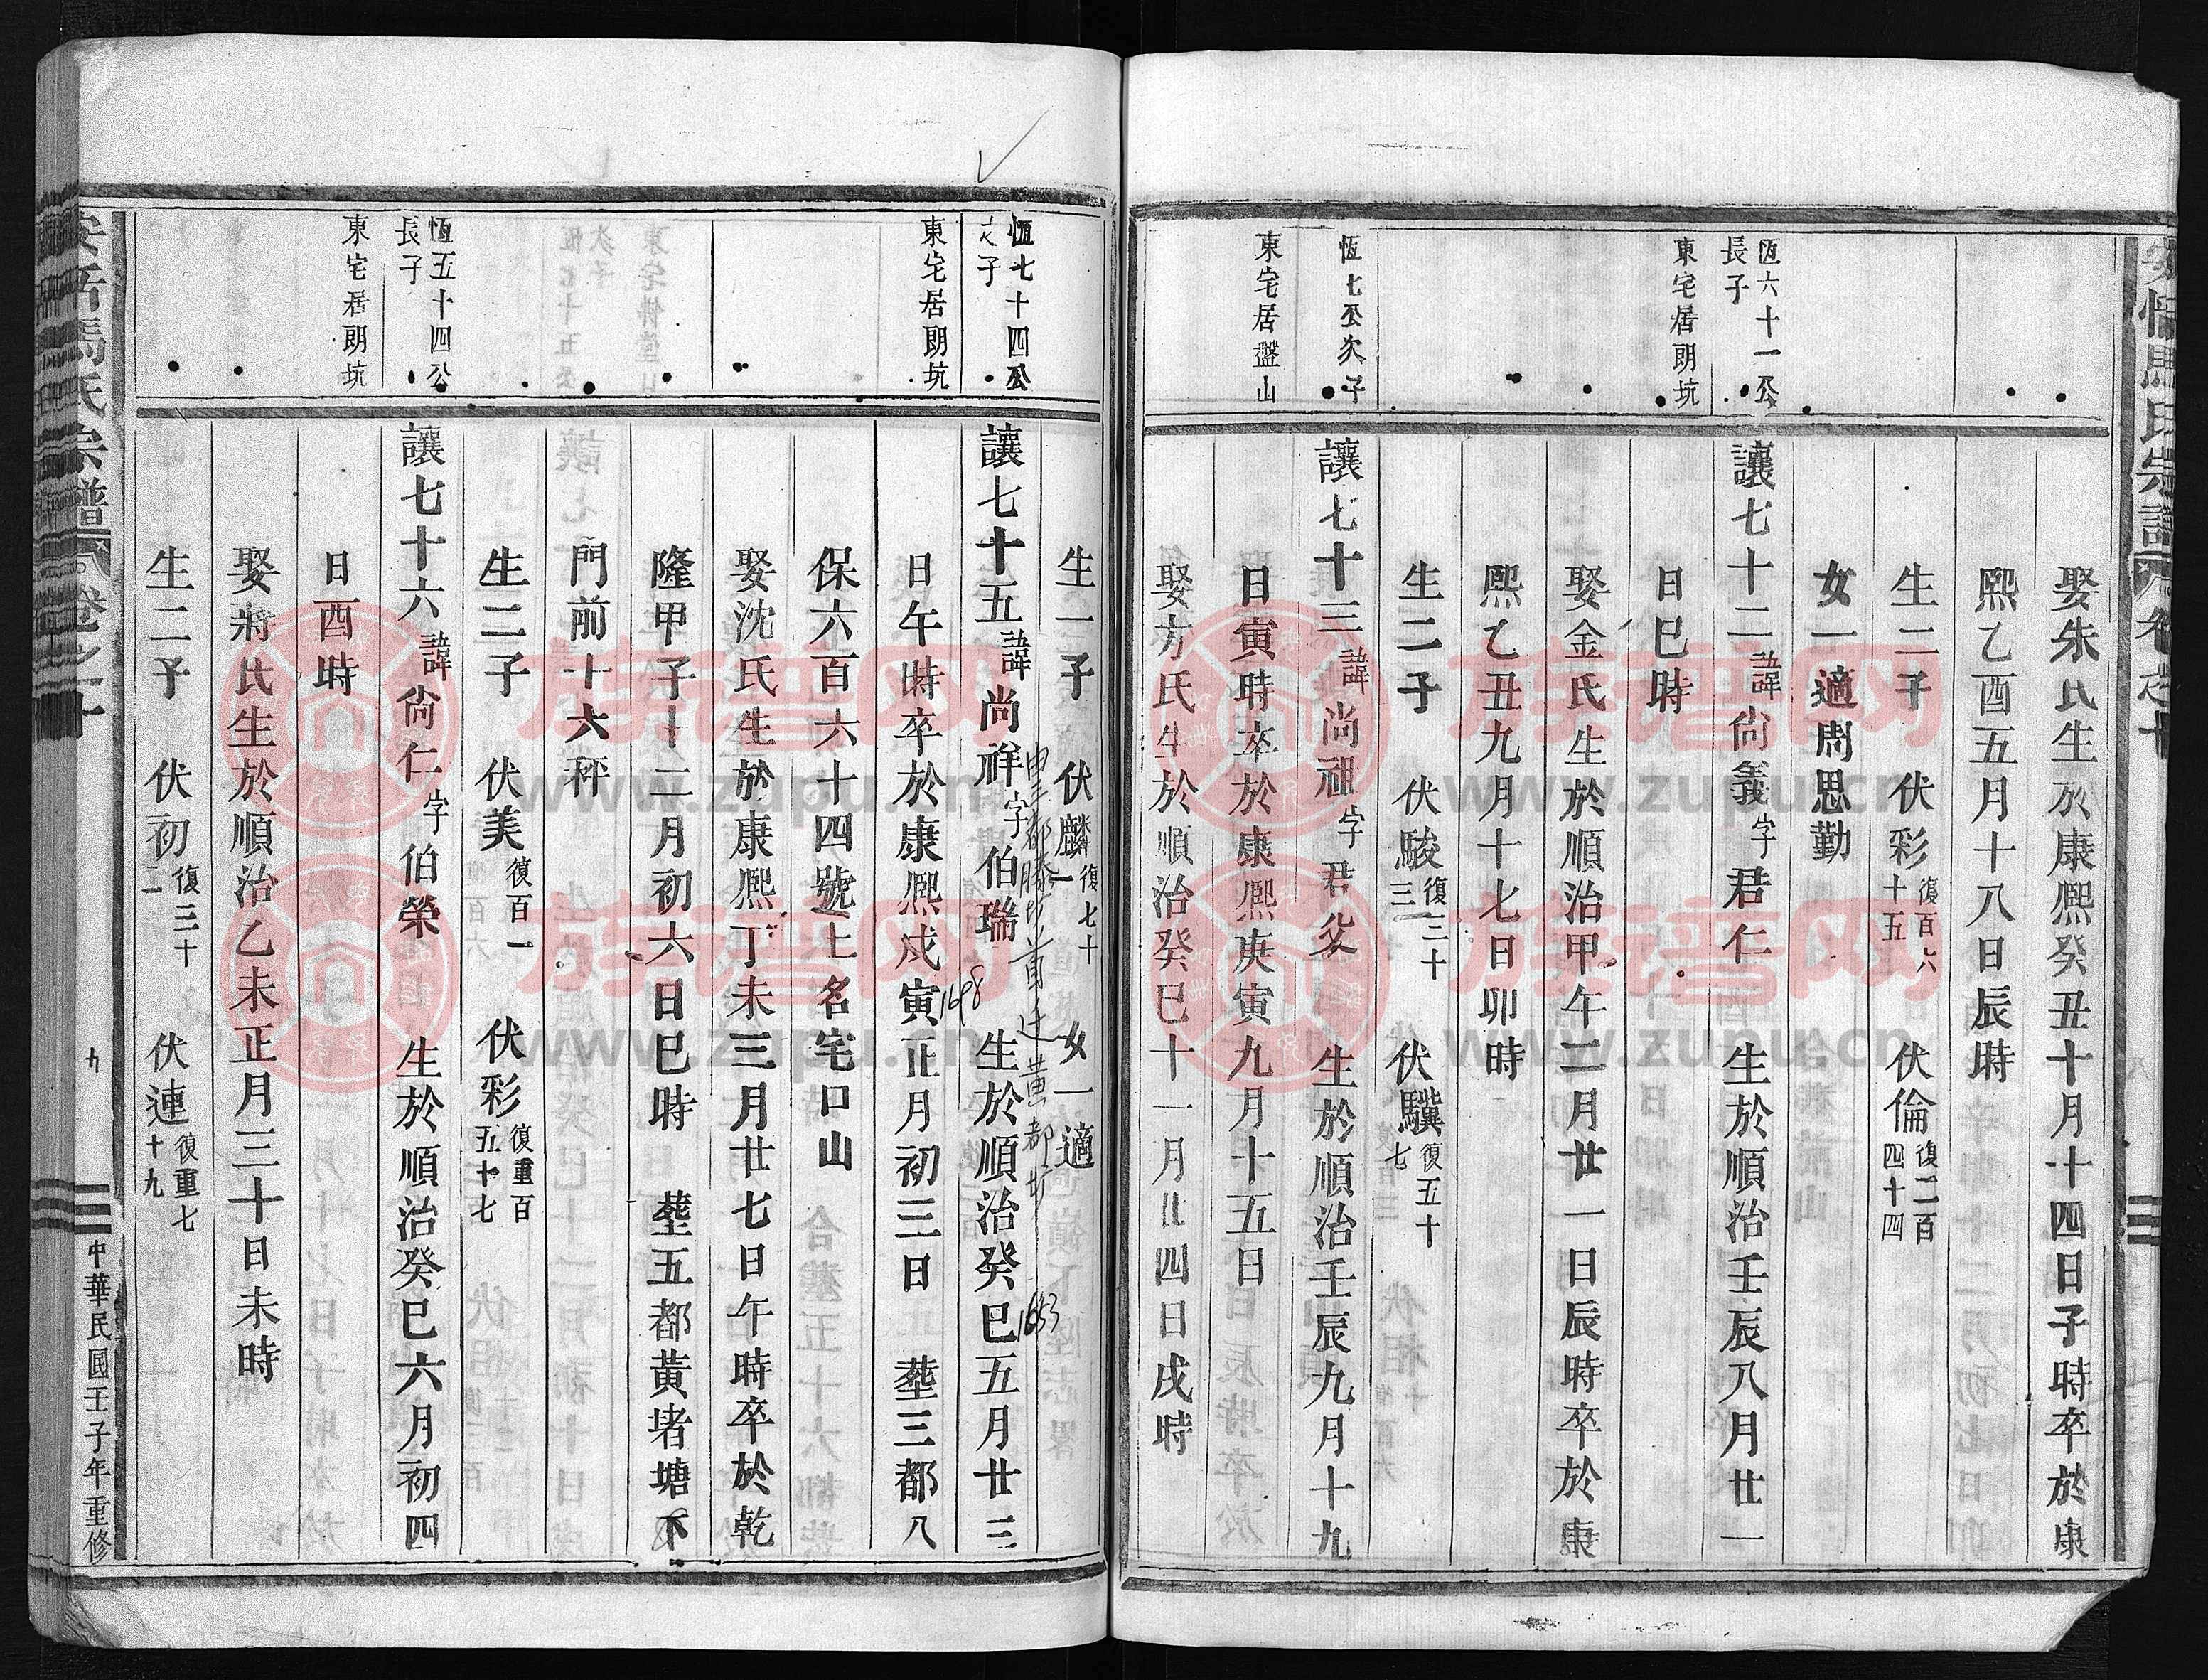 娶朱氏生於康熙癸丑十月十四日子時卒於康
熙乙酉五月十八日辰時
生二子 伏彩復百六十五 伏倫復二百四十四
女一適周思勤
恆六十一公
長子
東宅居朗坑
讓七十二諱尙義字君仁 生於順治壬辰八月廿一
日巳時
娶金氏生於順治甲午二月廿一日辰時卒於康
熙乙丑九月十七日卯時
生二子 伏駿復三十三 伏驥復五十七
恆七公次子
東宅居盤山
讓七十三諱尚祖字君 生於順治壬辰九月十九
日寅時卒於康熙庚寅九月十五日
娶方氏生於順治癸巳十一月廿四日戌時
生一子 伏麟復七十一 女一適
恆七十四公
子
東宅居朗坑
讓七十五諱尚祥字伯瑞 生於順治癸巳五月廿三
1653
日午時卒於康熙戊寅正月初三日 塟三都八
1698
保六百六十四號土名宅口山
娶沈氏生於康熙丁未三月廿七日午時卒於乾
隆甲子十二月初六日巳時 塟五都黃堵塘下
門前十六秤
生二子 伏美復百一 伏彩復重百五十七
恆五十四公
長子
東宅居朗坑
讓七十六諱尙仁字伯榮 生於順治癸巳六月初四
日酉時
娶蔣氏生於順治乙未正月三十日未時
生二子 伏初復三十一 伏連復重七十九
馬氏宗譜 卷之十
九
中華民國壬子年重修
族谱网
www.zupu.cn
族谱网
www.zupu.cn
族谱网
www.zupu.cn
族谱网
www.zupu.cn